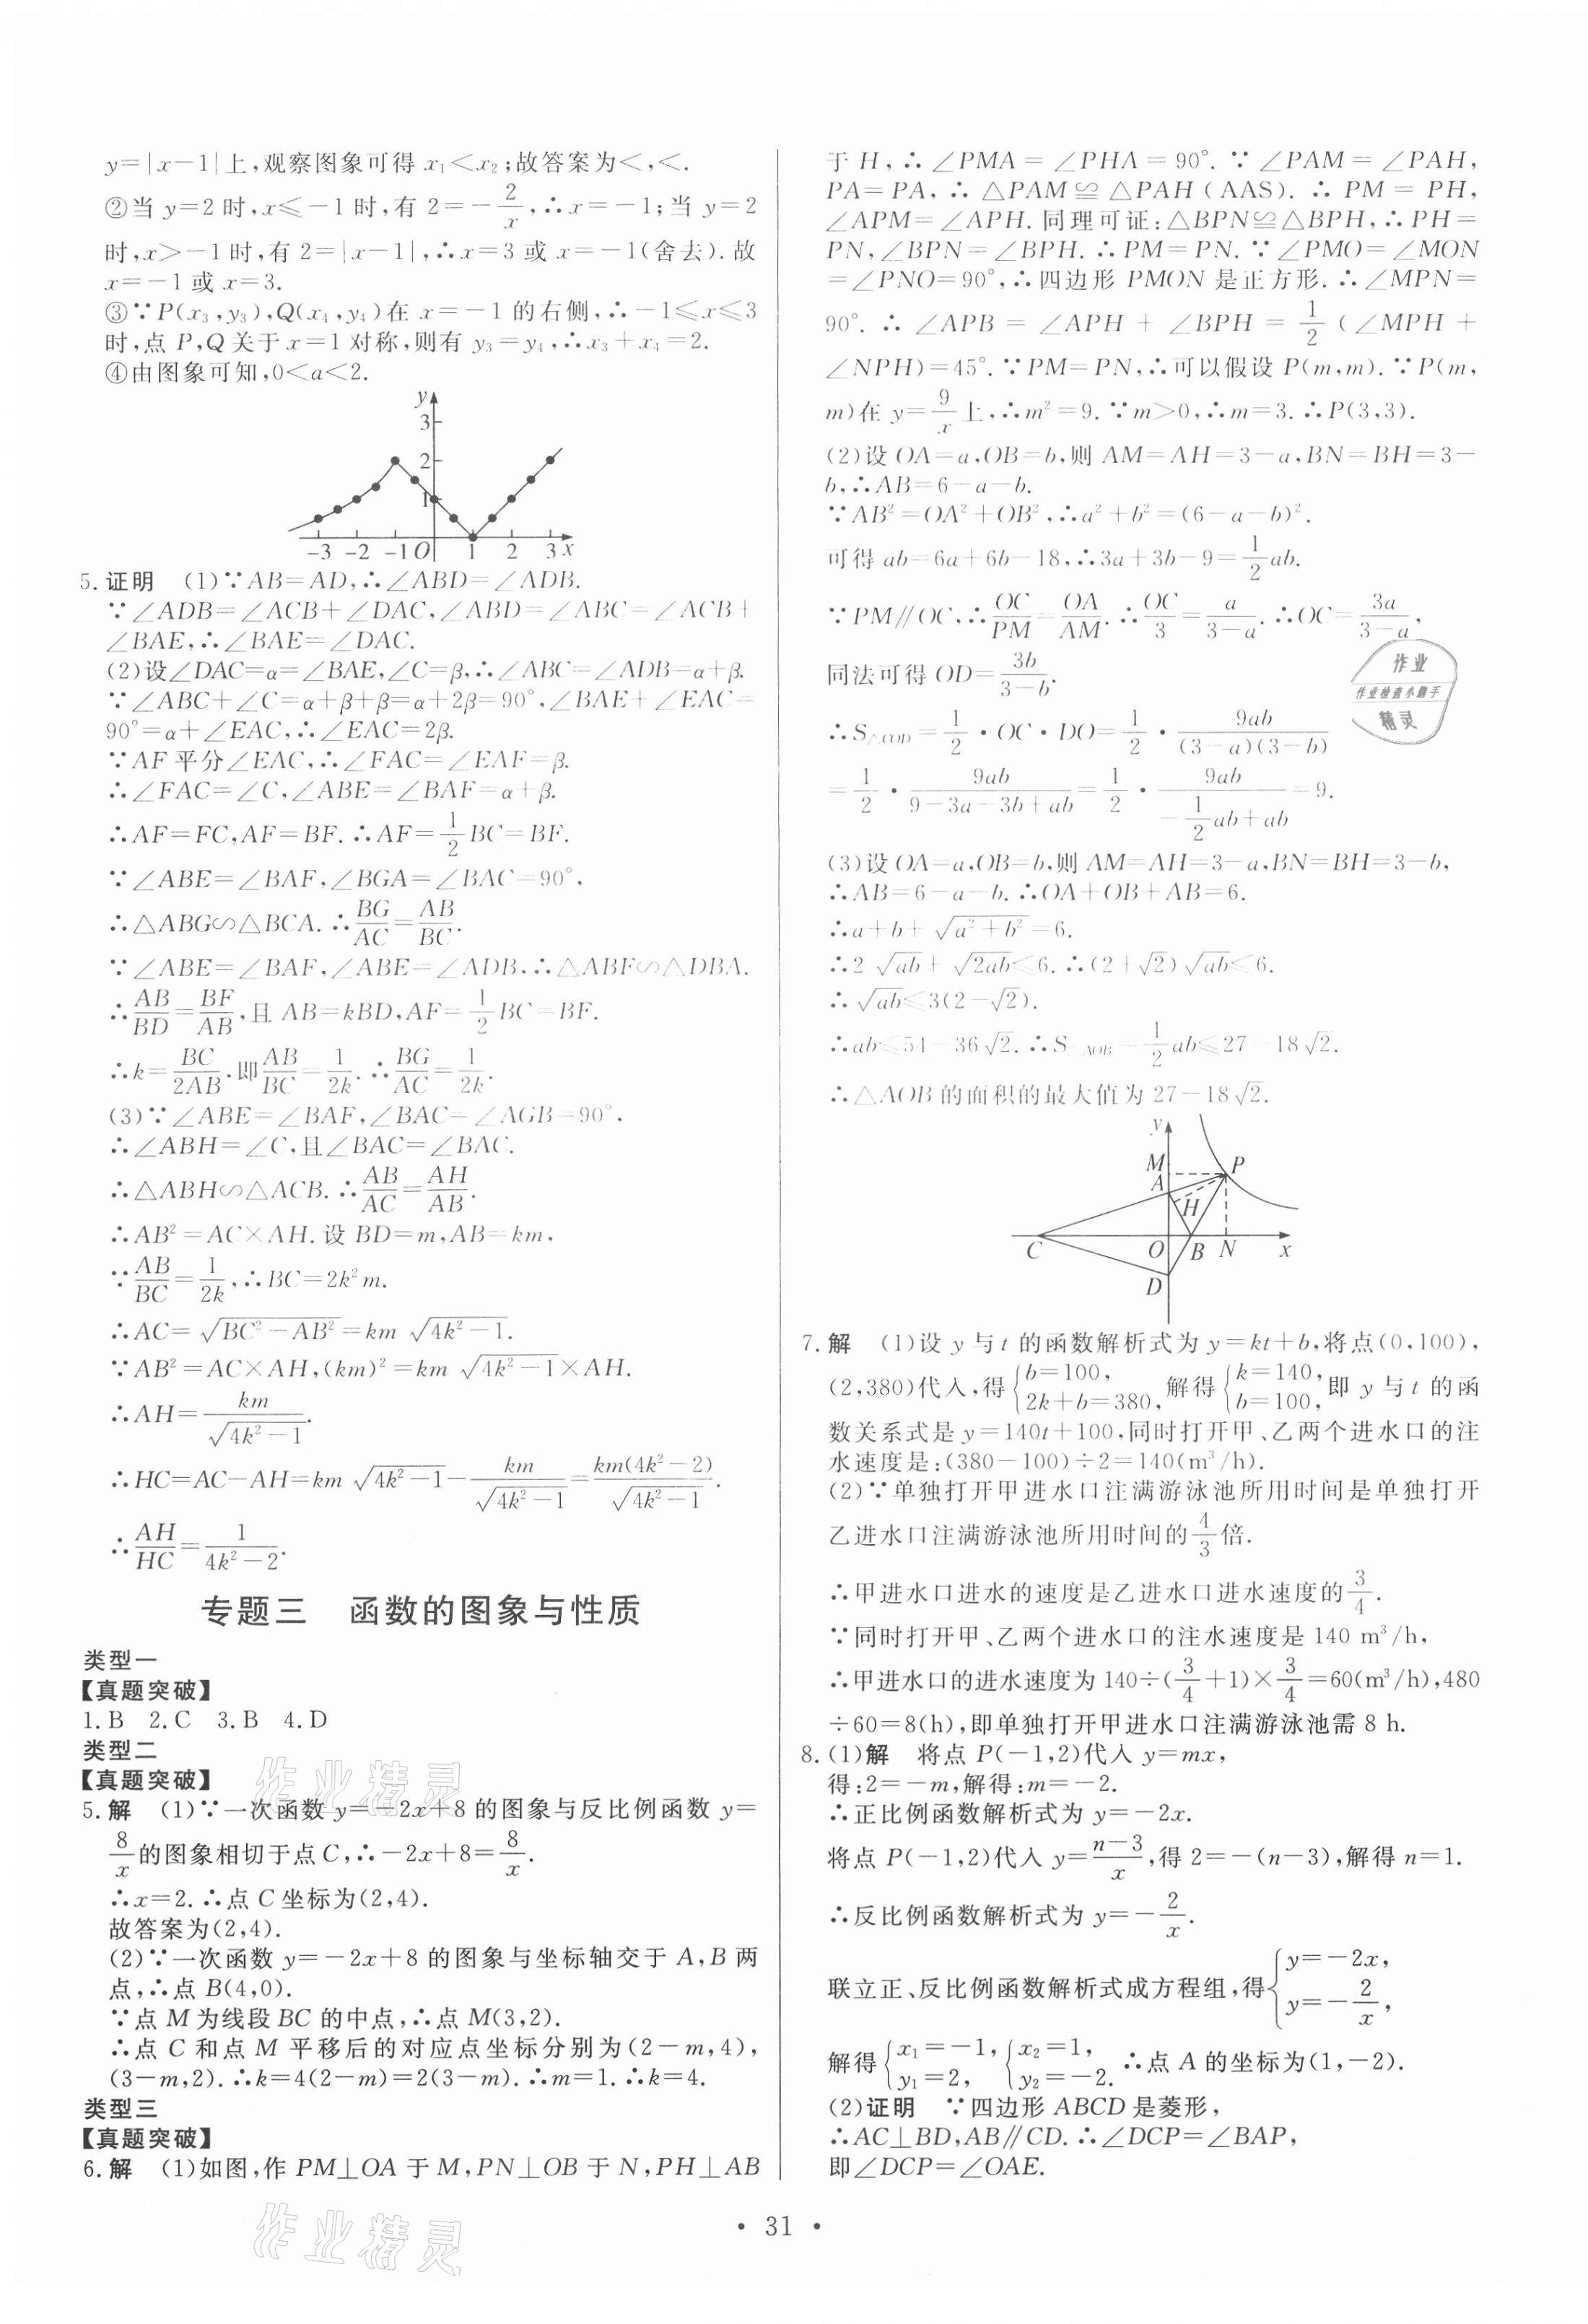 y=|x-1|上,观察图象可得 x₁<x₂;故答案为<,<.
②当 y=2 时,x≤-1 时,有 2=-2/x,∴x=-1;当 y=2
时,x>-1 时,有 2=|x-1|,∴x=3 或 x=-1(舍去).故
x=-1 或 x=3.
③∵P(x₃,y₃),Q(x₄,y₄)在 x=-1 的右侧,∴-1≤x≤3
时,点 P,Q 关于 x=1 对称,则有 y₃=y₄,∴x₃+x₄=2.
④由图象可知,0<a<2.
y
3
2
1
-3 -2 -1 O 1 2 3 x
5.证明 (1)∵AB=AD,∴∠ABD=∠ADB.
∵∠ADB=∠ACB+∠DAC,∠ABD=∠ABC=∠ACB+
∠BAE,∴∠BAE=∠DAC.
(2)设∠DAC=α=∠BAE,∠C=β,∴∠ABC=∠ADB=α+β.
∵∠ABC+∠C=α+β+β=α+2β=90°,∠BAE+∠EAC=
90°=α+∠EAC,∴∠EAC=2β.
∵AF 平分∠EAC,∴∠FAC=∠EAF=β.
∴∠FAC=∠C,∠ABE=∠BAF=α+β.
∴AF=FC,AF=BF.∴AF=1/2 BC=BF.
∵∠ABE=∠BAF,∠BGA=∠BAC=90°,
∴△ABG∽△BCA.∴BG/AC=AB/BC.
∵∠ABE=∠BAF,∠ABE=∠ADB,∴△ABF∽△DBA.
∴AB/BD=BF/AB,且 AB=kBD,AF=1/2 BC=BF.
∴k=BC/2AB,即AB/BC=1/2k.∴BG/AC=1/2k.
(3)∵∠ABE=∠BAF,∠BAC=∠AGB=90°,
∴∠ABH=∠C,且∠BAC=∠BAC.
∴△ABH∽△ACB.∴AB/AC=AH/AB.
∴AB²=AC×AH.设 BD=m,AB=km,
∵AB/BC=1/2k,∴BC=2k²m.
∴AC=√(BC²-AB²)=km √(4k²-1).
∵AB²=AC×AH,(km)²=km √(4k²-1)×AH.
∴AH=km/√(4k²-1).
∴HC=AC-AH=km √(4k²-1)-km/√(4k²-1)=km(4k²-2)/√(4k²-1).
∴AH/HC=1/(4k²-2).
专题三 函数的图象与性质
类型一
【真题突破】
1.B 2.C 3.B 4.D
类型二
【真题突破】
5.解 (1)∵一次函数 y=-2x+8 的图象与反比例函数 y=
8/x 的图象相切于点 C,∴-2x+8=8/x.
∴x=2.∴点 C 坐标为(2,4).
故答案为(2,4).
(2)∵一次函数 y=-2x+8 的图象与坐标轴交于 A,B 两
点,∴点 B(4,0).
∵点 M 为线段 BC 的中点,∴点 M(3,2).
∴点 C 和点 M 平移后的对应点坐标分别为(2-m,4),
(3-m,2).∴k=4(2-m)=2(3-m).∴m=1.∴k=4.
类型三
【真题突破】
6.解 (1)如图,作 PM⊥OA 于 M,PN⊥OB 于 N,PH⊥AB
于 H,∴∠PMA=∠PHA=90°.∵∠PAM=∠PAH,
PA=PA,∴△PAM≌△PAH(AAS).∴PM=PH,
∠APM=∠APH.同理可证:△BPN≌△BPH,∴PH=
PN,∠BPN=∠BPH.∴PM=PN.∵∠PMO=∠MON
=∠PNO=90°,∴四边形 PMON 是正方形.∴∠MPN=
90°.∴∠APB=∠APH+∠BPH=1/2(∠MPH+
∠NPH)=45°.∵PM=PN,∴可以假设 P(m,m).∵P(m,
m)在 y=9/x 上,∴m²=9.∵m>0,∴m=3.∴P(3,3).
(2)设 OA=a,OB=b,则 AM=AH=3-a,BN=BH=3-
b,∴AB=6-a-b.
∵AB²=OA²+OB²,∴a²+b²=(6-a-b)².
可得 ab=6a+6b-18,∴3a+3b-9=1/2 ab.
∵PM∥OC,∴OC/PM=OA/AM.∴OC/3=a/(3-a).∴OC=3a/(3-a),
同法可得 OD=3b/(3-b).
∴S△COD=1/2·OC·DO=1/2·9ab/((3-a)(3-b))
=1/2·9ab/(9-3a-3b+ab)=1/2·9ab/(-1/2 ab+ab)=9.
(3)设 OA=a,OB=b,则 AM=AH=3-a,BN=BH=3-b,
∴AB=6-a-b.∴OA+OB+AB=6.
∴a+b+√(a²+b²)=6.
∴2 √ab+√2ab≤6.∴(2+√2)√ab≤6.
∴√ab≤3(2-√2).
∴ab≤54-36√2.∴S△AOB=1/2 ab≤27-18√2.
∴△AOB 的面积的最大值为 27-18√2.
y
M P
A
H
C O B N x
D
7.解 (1)设 y 与 t 的函数解析式为 y=kt+b,将点(0,100),
(2,380)代入,得{b=100, 2k+b=380, 解得{k=140, b=100, 即 y 与 t 的函
数关系式是 y=140t+100,同时打开甲、乙两个进水口的注
水速度是:(380-100)÷2=140(m³/h).
(2)∵单独打开甲进水口注满游泳池所用时间是单独打开
乙进水口注满游泳池所用时间的4/3倍.
∴甲进水口进水的速度是乙进水口进水速度的3/4.
∵同时打开甲、乙两个进水口的注水速度是 140 m³/h,
∴甲进水口的进水速度为 140÷(3/4+1)×3/4=60(m³/h),480
÷60=8(h),即单独打开甲进水口注满游泳池需 8 h.
8.(1)解 将点 P(-1,2)代入 y=mx,
得:2=-m,解得:m=-2.
∴正比例函数解析式为 y=-2x.
将点 P(-1,2)代入 y=(n-3)/x,得 2=-(n-3),解得 n=1.
∴反比例函数解析式为 y=-2/x.
联立正、反比例函数解析式成方程组,得{y=-2x, y=-2/x,
解得{x₁=-1, y₁=2, {x₂=1, y₂=-2. ∴点 A 的坐标为(1,-2).
(2)证明 ∵四边形 ABCD 是菱形,
∴AC⊥BD,AB∥CD.∴∠DCP=∠BAP,
即∠DCP=∠OAE.
作业
作业检查小助手
精灵
作业精灵
作业精灵
• 31 •